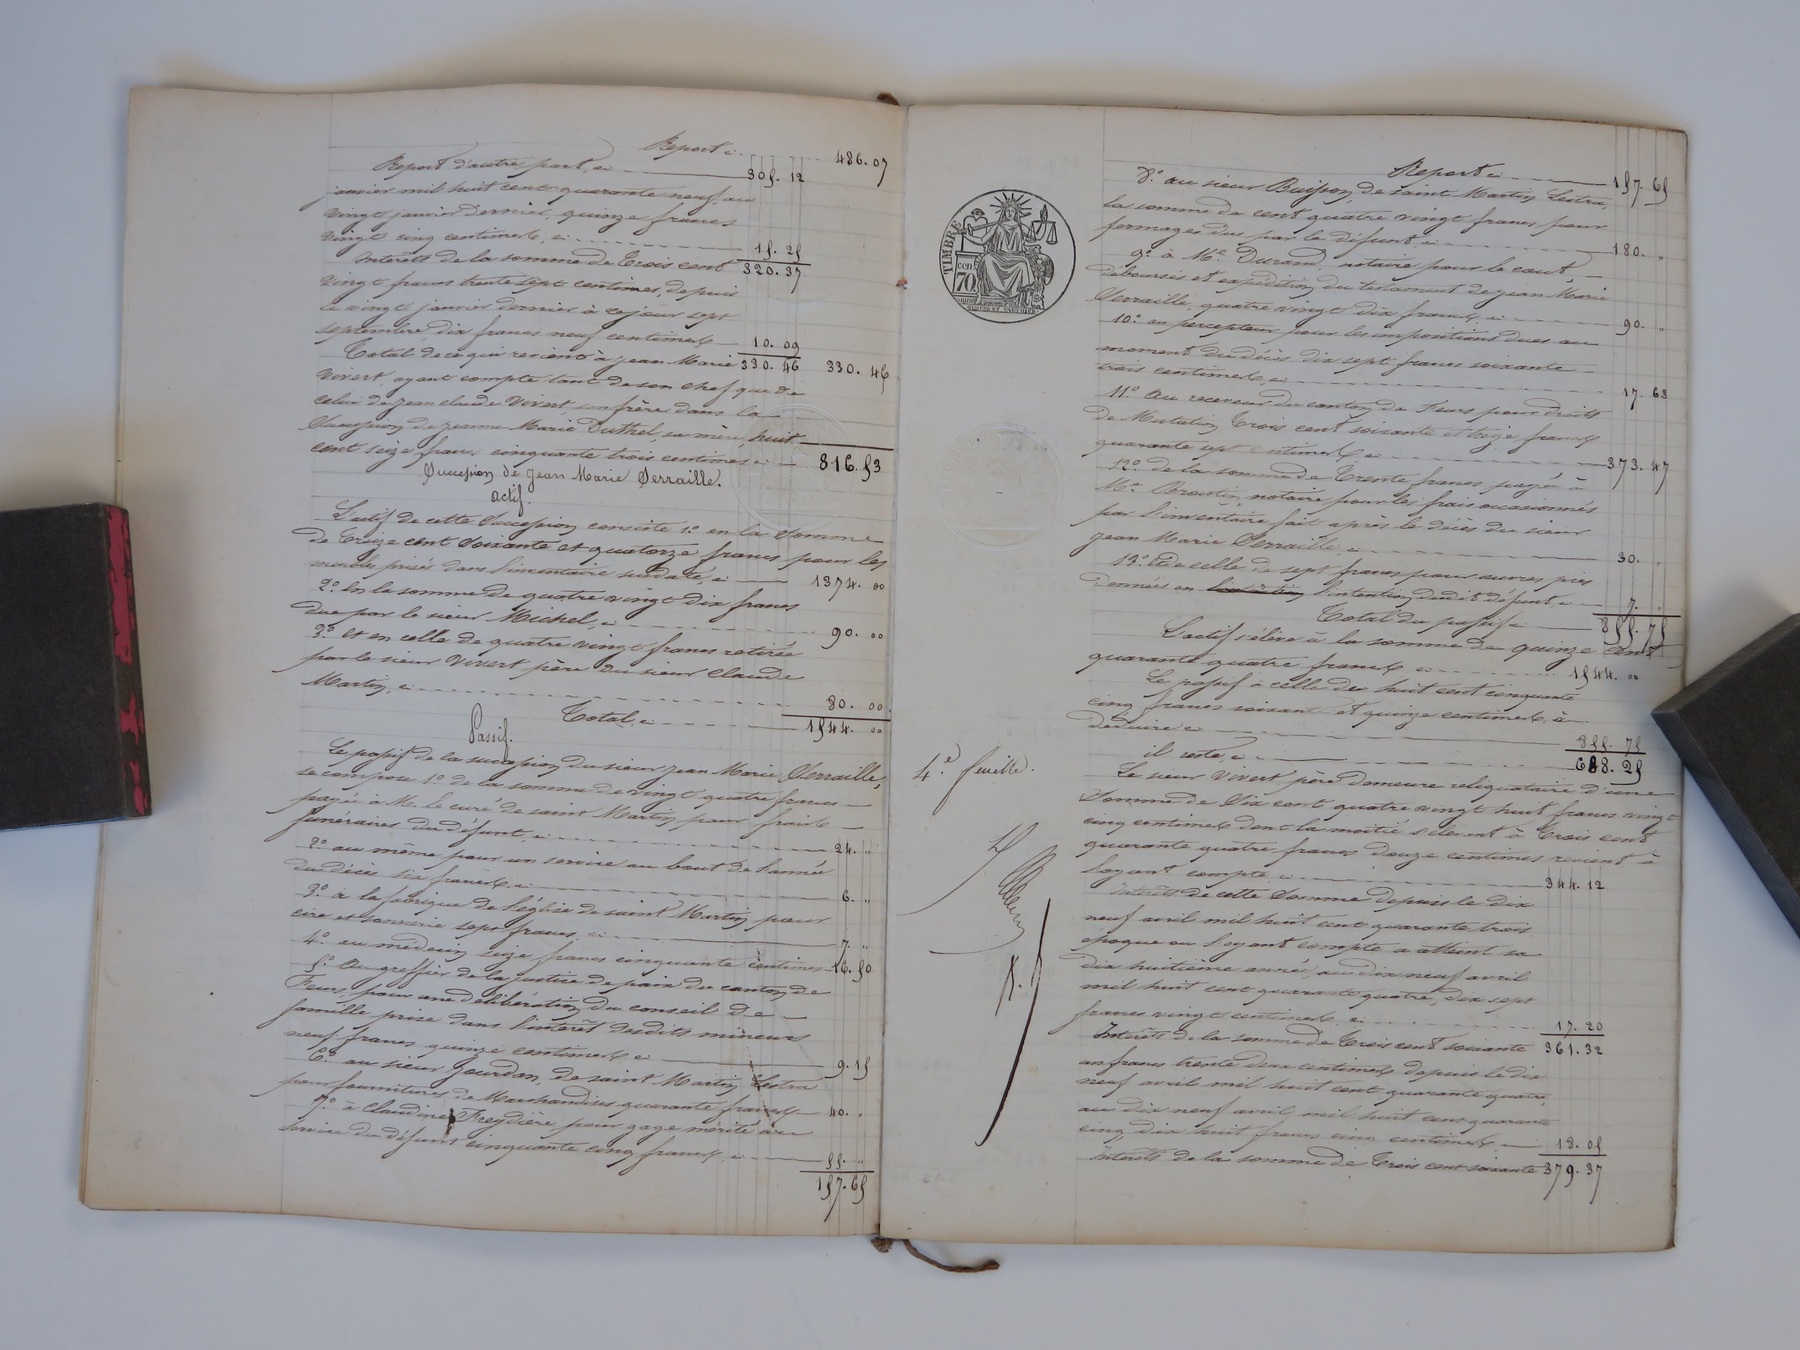 Report ... 486.07
Report d'autre part, ... 305. 12
janvier mil huit cent quarante neuf, au
vingt janvier dernier, quinze francs
vingt cinq centimes, ... 15. 25
320. 37
Intérêts de la somme de trois cent
vingt francs trente sept centimes, depuis
le vingt janvier dernier à ce jour sept
septembre, dix francs neuf centimes 10. 09
Total de ce qui revient à Jean Marie 330. 46 330. 46
Vivert, ayant compte tant de son chef que de
celui de Jean Claude Vivert, son frère dans la
Succession de Jeanne Marie Duthel, sa mère, huit
cent seize francs cinquante trois centimes 816. 53
Succession de Jean Marie Serraille.
actif.
L'actif de cette Succession consiste 1.° en la Somme
de treize cent soixante et quatorze francs pour les
meubles prisés dans l'inventaire susdaté, 1374. 00
2.° En la somme de quatre vingt dix francs
due par le sieur Michel, 90. 00
3.° Et en celle de quatre vingt francs retirée
par le sieur Vivert père du sieur Claude
Martin, 80. 00
Total, 1544. 00
Passif.
Le passif de la succession du sieur Jean Marie Serraille,
se compose 1.° de la somme de vingt quatre francs
payée à M. le curé de saint Martin pour frais
funéraires du défunt, 24. "
2.° au même pour un service au bout de l'année
du décès six francs, 6. "
3.° à la fabrique de l'église de saint Martin pour
cire et sonnerie sept francs, 7. "
4.° au médecin seize francs cinquante centimes 16. 50
5.° Au greffier de la justice de paix du canton de
Feurs, pour une délibération du conseil de
famille prise dans l'intérêt desdits mineurs
neuf francs quinze centimes 9. 15
6.° au sieur Jourdan, de saint Martin Lestra
pour fournitures de Marchandises quarante francs 40. "
7.° à Claudine Freydière pour gage mérité au
service du défunt cinquante cinq francs, 55. "
157. 65
TIMBRE
cen
70
Report 157. 65
8.° au sieur Buisson, de saint Martin Lestra,
la somme de cent quatre vingt francs pour
fermages dus par le défunt 180. "
9.° à M.e Durand, notaire pour le coût
déboursés et expédition du testament de Jean Marie
Serraille, quatre vingt dix francs 90. "
10.° au percepteur pour les impositions dues au
moment du décès dix sept francs soixante
trois centimes, 17. 63
11.° Au receveur du canton de Feurs pour droits
de Mutation trois cent soixante et treize francs
quarante sept centimes 373. 47
12.° de la somme de trente francs payée à
M.e notaire pour les frais occasionnés
par l'inventaire fait après le décès du sieur
Jean Marie Serraille, 30. "
13.° Et de celle de sept francs pour œuvres pies
données en l'intention dudit défunt 7. "
Total du passif 855. 75
L'actif s'élève à la somme de quinze cent
quarante quatre francs 1544. 00
Le passif à celle de huit cent cinquante
cinq francs soixante et quinze centimes, à
déduire 855. 75
il reste, 688. 25
4.e feuille.
Le sieur Vivert père demeure reliquataire d'une
Somme de Six cent quatre vingt huit francs vingt
cinq centimes dont la moitié s'élevant à trois cent
quarante quatre francs douze centimes revient à
l'oyant compte, 344. 12
Intérêts de cette Somme depuis le dix
neuf avril mil huit cent quarante trois
époque où l'oyant compte a atteint sa
dix huitième année, au dix neuf avril
mil huit cent quarante quatre, dix sept
francs vingt centimes, 17. 20
Intérêts de la somme de trois cent soixante 361. 32
un francs trente deux centimes depuis le dix
neuf avril mil huit cent quarante quatre,
au dix neuf avril mil huit cent quarante
cinq, dix huit francs cinq centimes, 18. 05
Intérêts de la somme de trois cent soixante 379. 37